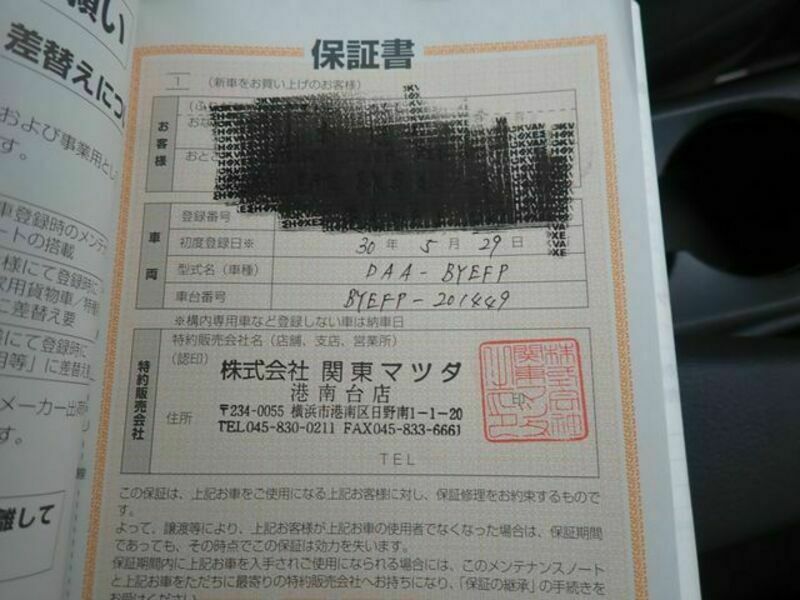 願い
差替えにつ
および事業用とし
す。
車登録時のメンテ
ートの搭載
様にて登録時に
家用貨物車/特種
に差替え要
にて登録時に
用等」に差替え
メーカー出荷
す。
離して
保証書
1 (新車をお買い上げのお客様)
お客様
車両
登録番号
初度登録日※ 30 年 5 月 29 日
型式名(車種) DAA-BYEFP
車台番号 BYEFP-201449
※構内専用車など登録しない車は納車日
特約販売会社
特約販売会社名(店舗、支店、営業所)
(認印)
株式会社 関東マツダ
港南台店
住所
〒234-0055 横浜市港南区日野南1-1-20
TEL045-830-0211 FAX045-833-6661
TEL
この保証は、上記お車をご使用になる上記お客様に対し、保証修理をお約束するもので
す。
よって、譲渡等により、上記お客様が上記お車の使用者でなくなった場合は、保証期間
であっても、その時点でこの保証は効力を失います。
保証期間内に上記お車を入手されご使用になられる場合には、このメンテナンスノート
と上記お車をただちに最寄りの特約販売会社へお持ちになり、「保証の継承」の手続きを
お受けください。